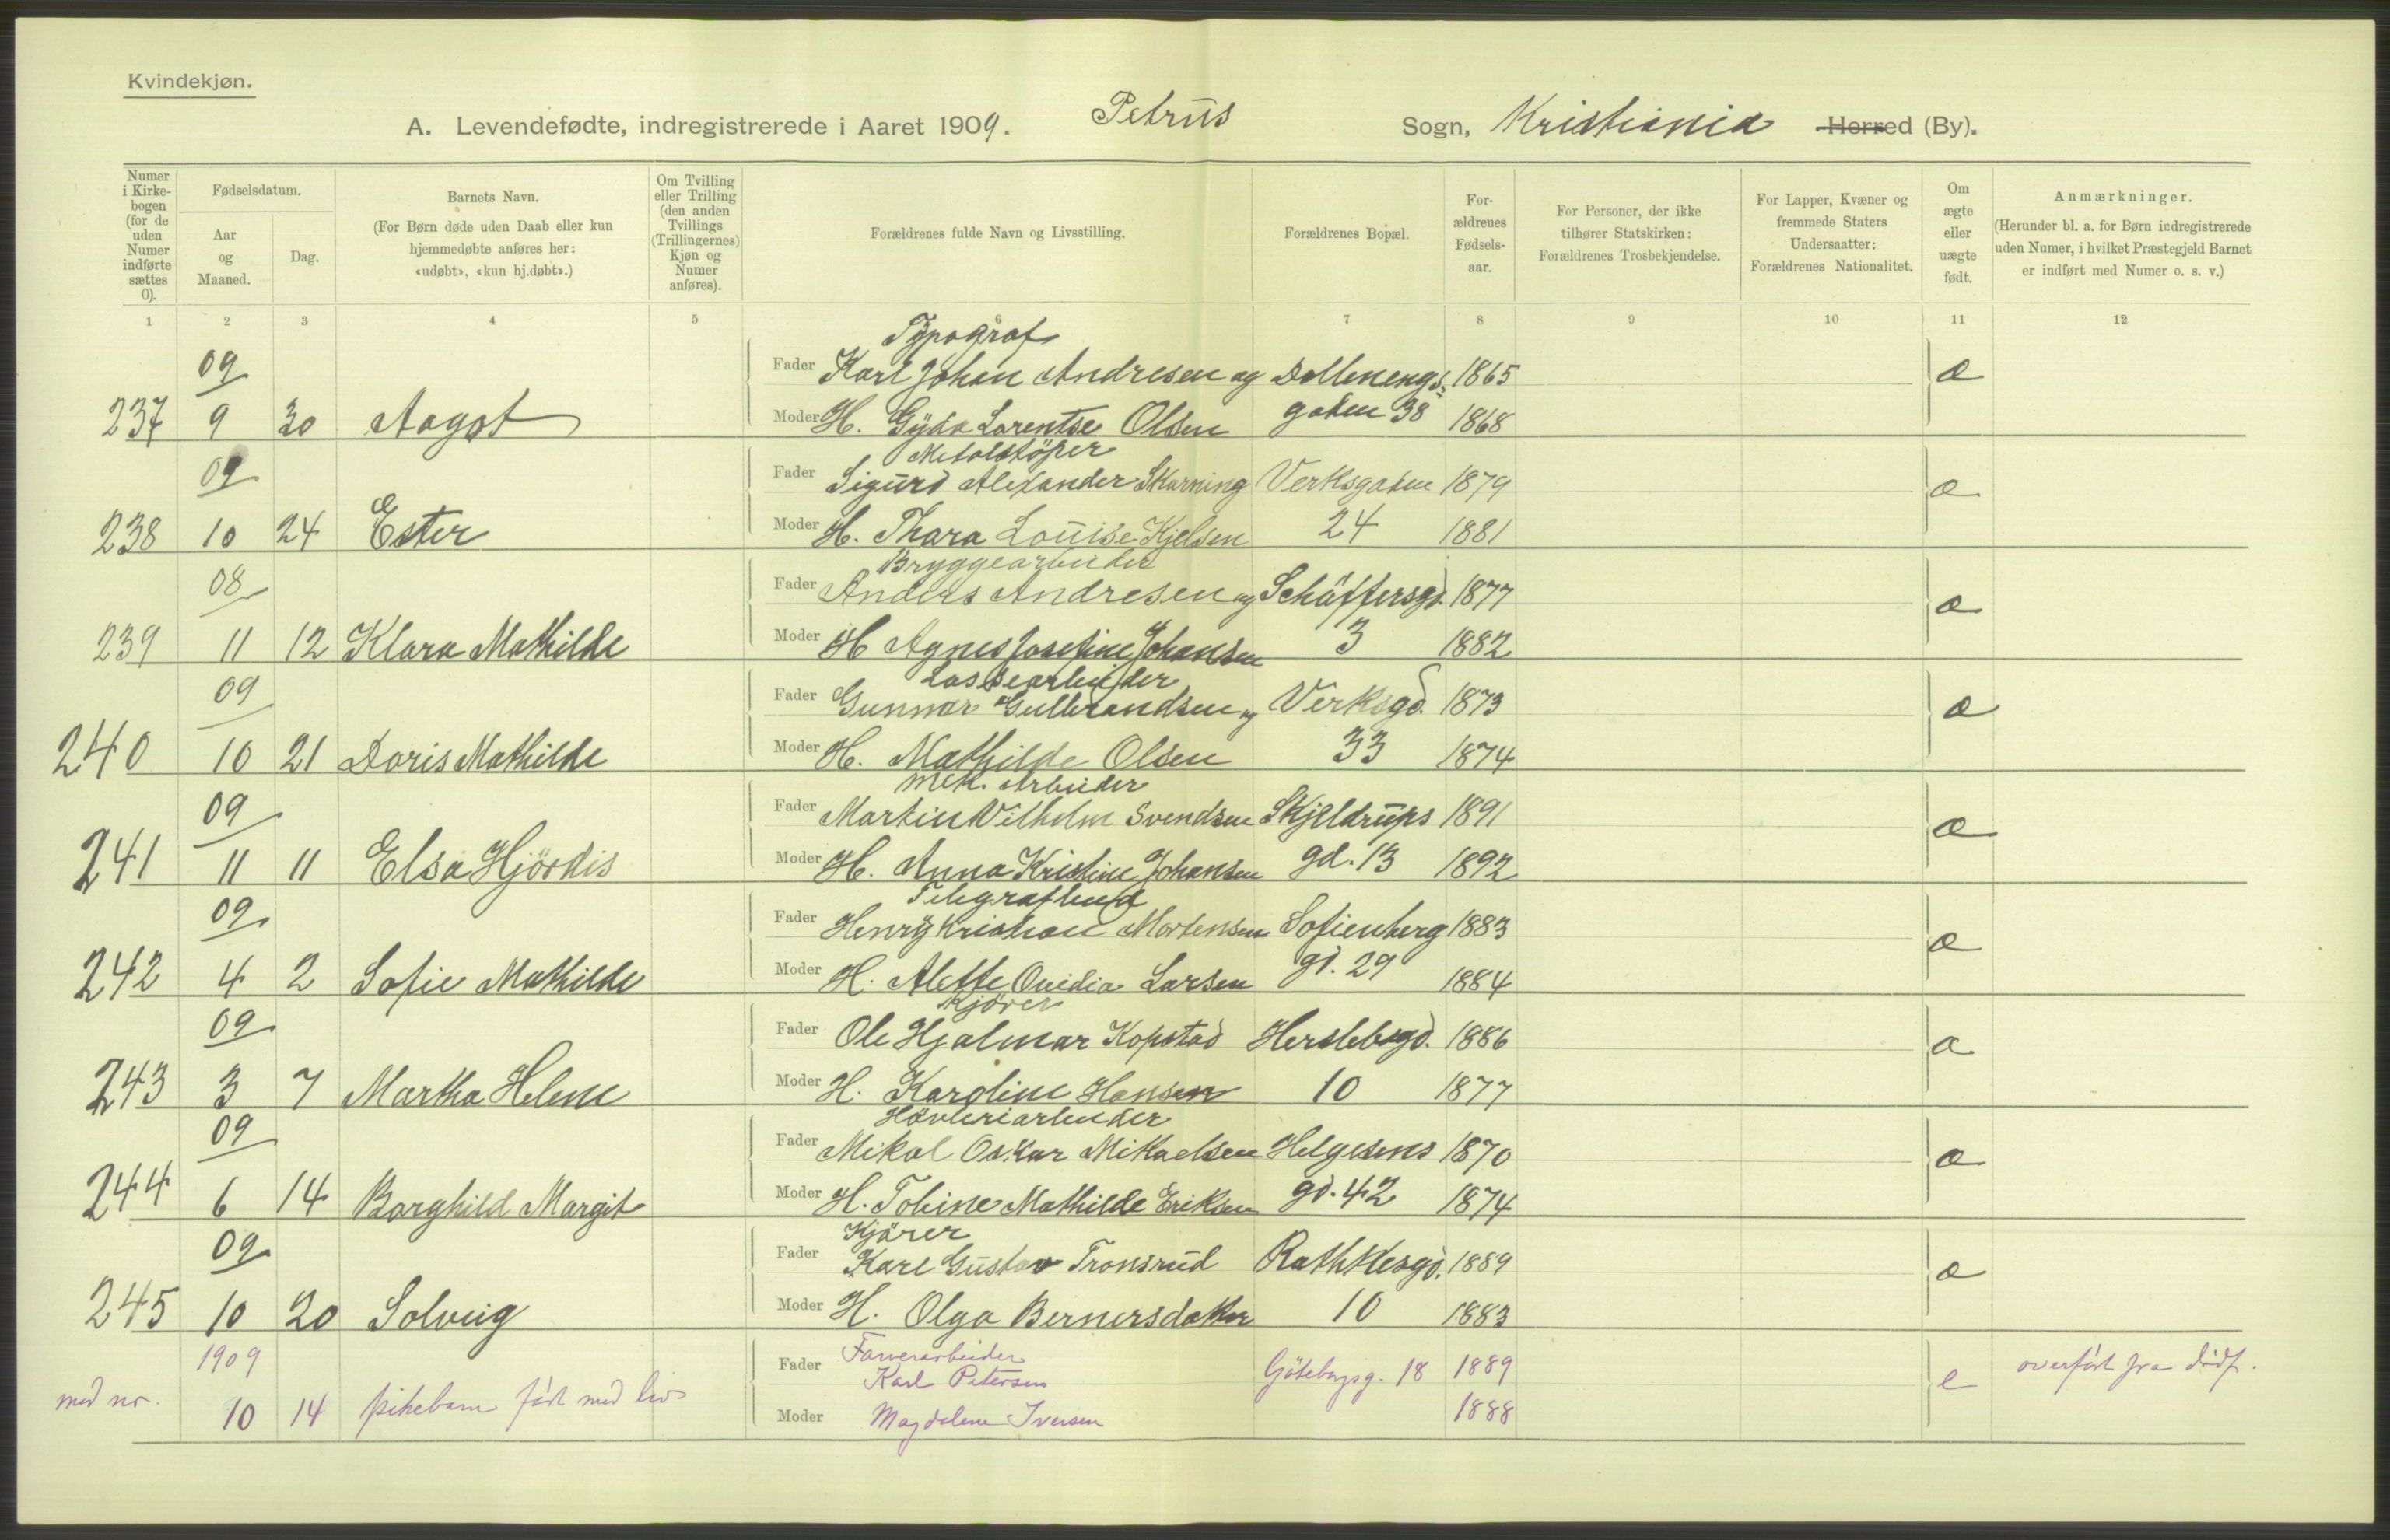 Kvindekjøn.
A. Levendefødte, indregistrerede i Aaret 1909. Petrus Sogn, Kristiania Herred (By).
Numer i Kirke-bogen (for de uden Numer indførte sættes 0).
Fødselsdatum.
Aar og Maaned.
Dag.
Barnets Navn.
(For Børn døde uden Daab eller kun hjemmedøbte anføres her: «udøbt», «kun hj.døbt».)
Om Tvilling eller Trilling (den anden Tvillings (Trillingernes) Kjøn og Numer anføres).
Forældrenes fulde Navn og Livsstilling.
Forældrenes Bopæl.
For-ældrenes Fødsels-aar.
For Personer, der ikke tilhører Statskirken: Forældrenes Trosbekjendelse.
For Lapper, Kvæner og fremmede Staters Undersaatter: Forældrenes Nationalitet.
Om ægte eller uægte født.
Anmærkninger.
(Herunder bl. a. for Børn indregistrerede uden Numer, i hvilket Præstegjeld Barnet er indført med Numer o. s. v.)
1 2 3 4 5 6 7 8 9 10 11 12
Typograf
09 Fader Karl Johan Andresen og Dællenengs 1865 æ
237 9 30 Aagot Moder H. Gyda Lorentse Olsen gaten 38 1868
Metalstöper
09 Fader Sigurd Alexander Skarning Verksgaten 1879 æ
238 10 24 Ester Moder H. Thora Louise Kjelsen 24 1881
Bryggearbeider
08 Fader Anders Andresen og Schäffersgd. 1877 æ
239 11 12 Klara Mathilde Moder H Agnes Josefine Johansen 3 1882
Lossearbeider
09 Fader Gunnar Gulbrandsen og Verksgd. 1873 æ
240 10 21 Doris Mathilde Moder H. Mathilde Olsen 33 1874
Mek. Arbeider
09 Fader Martin Wilhelm Svendsen Skjeldrups 1891 æ
241 11 11 Elsa Hjördis Moder H. Anna Kristine Johansen gd. 13 1892
09 Fader Henry Kristian Mortensen Sofienberg 1883 æ
242 4 2 Sofie Mathilde Moder H. Alette Ovidia Larsen gd. 29 1884
Kjörer
09 Fader Ole Hjalmar Kopstad Herslebsgd. 1886 æ
243 3 7 Martha Helene Moder H. Karoline Hansen 10 1877
Hövleriarbeider
09 Fader Mikal Oskar Mikaelsen Helgesens 1870 æ
244 6 14 Borghild Margit Moder H. Tobine Mathilde Eriksen gd. 42 1874
Kjörer
09 Fader Karl Gustav Tronsrud Rathkesgd. 1889 æ
245 10 20 Solveig Moder H. Olga Bernersdatter 10 1883
1909 Fader Farverarbeider
Karl Petersen Göteborgsg. 18 1889 e overført fra dødf.
10 14 pikebarn født med liv Moder Magdalene Iversen 1888